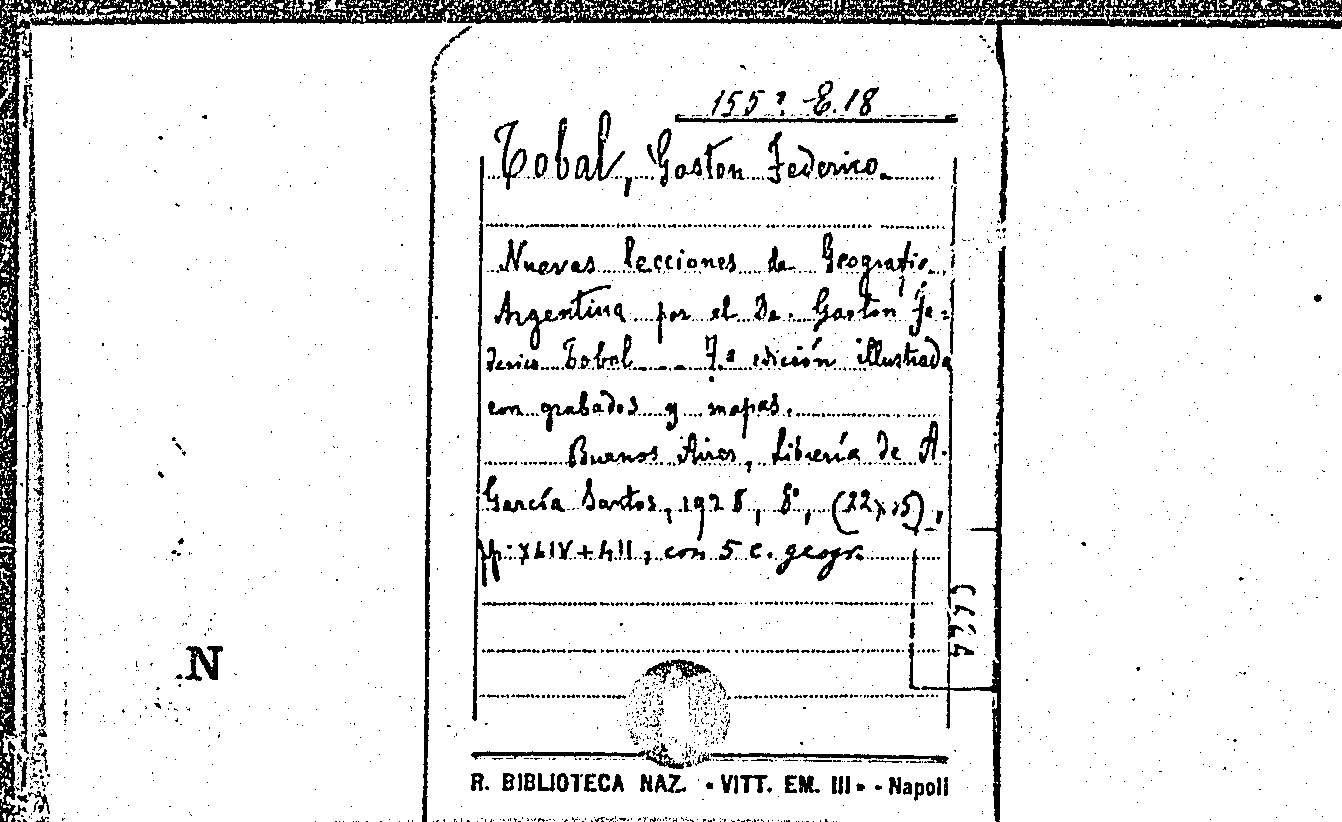 155ª. E.18
Tobal, Gaston Federico.
Nuevas lecciones de Geografia
Argentina por el Dr. Gaston Fe-
derico Tobal ... 7.ª edición illustrada
con grabados y mapas.
Buenos Aires, Librería de A.
García Santos, 1928, 8°, (22x15),
pp. XLIV+411, con 5 c. geogr.
N
R. BIBLIOTECA NAZ. • VITT. EM. III • - Napoli